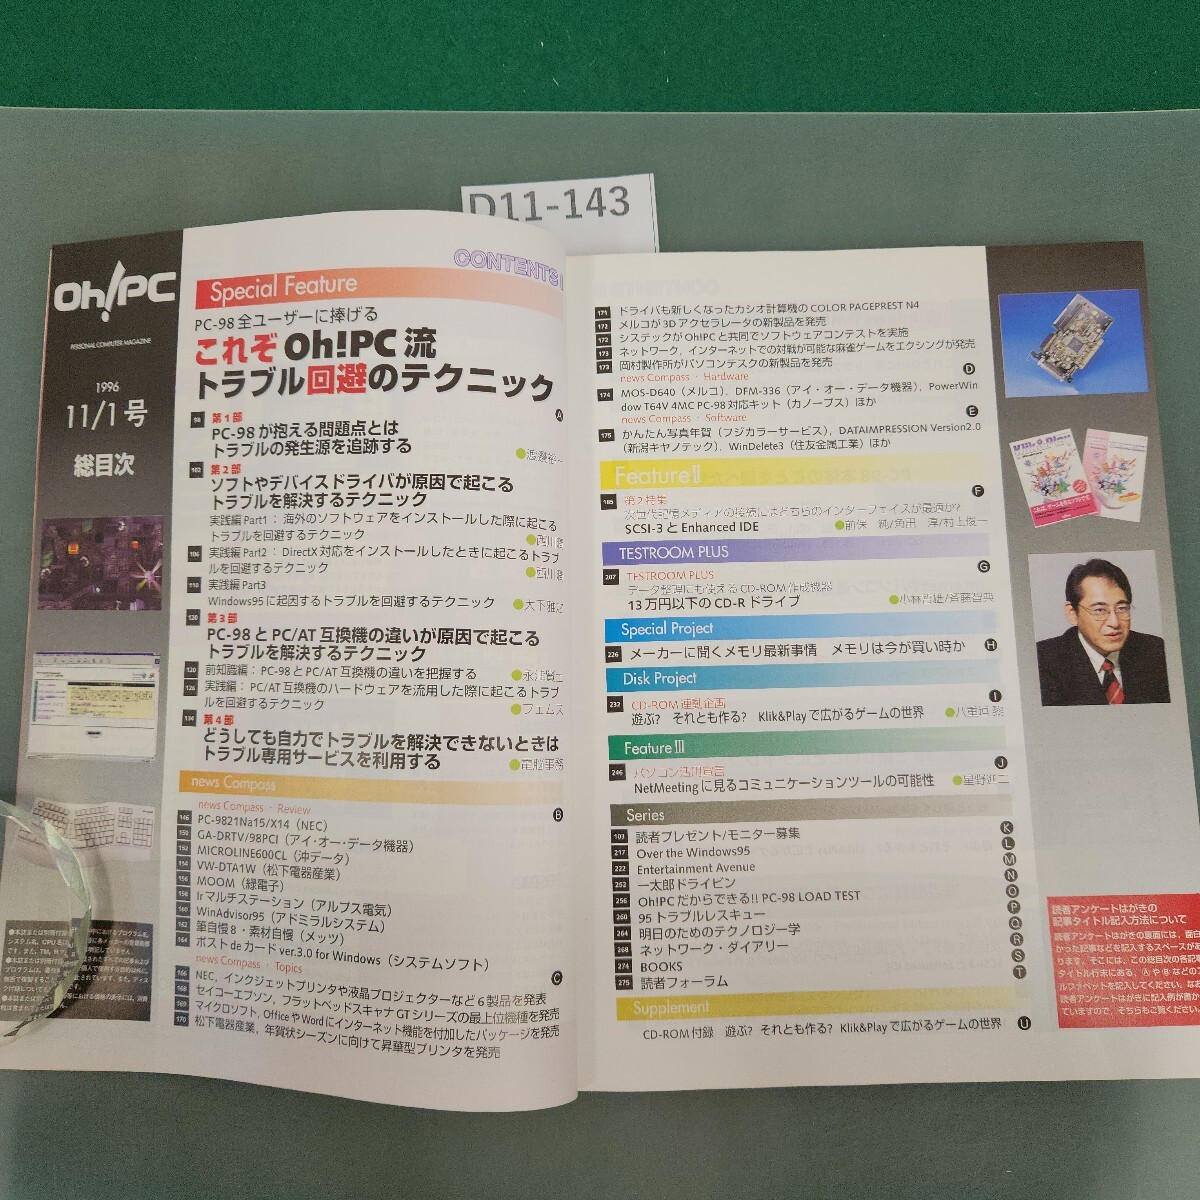 D11-143
Oh!PC
PERSONAL COMPUTER MAGAZINE
1996
11/1号
総目次
CONTENTS
Special Feature
PC-98全ユーザーに捧げる
これぞOh!PC流
トラブル回避のテクニック
A
98 第1部
PC-98が抱える問題点とは
トラブルの発生源を追跡する
102 第2部
ソフトやデバイスドライバが原因で起こる
トラブルを解決するテクニック
実践編Part1：海外のソフトウェアをインストールした際に起こる
トラブルを回避するテクニック
106 実践編Part2：DirectX対応をインストールしたときに起こるトラブ
ルを回避するテクニック
110 実践編Part3
Windows95に起因するトラブルを回避するテクニック
120 第3部
PC-98とPC/AT互換機の違いが原因で起こる
トラブルを解決するテクニック
120 前知識編：PC-98とPC/AT互換機の違いを把握する
126 実践編：PC/AT互換機のハードウェアを流用した際に起こるトラブ
ルを回避するテクニック
134 第4部
どうしても自力でトラブルを解決できないときは
トラブル専用サービスを利用する
news Compass
news Compass・Review B
146 PC-9821Na15/X14（NEC）
150 GA-DRTV/98PCI（アイ・オー・データ機器）
152 MICROLINE600CL（沖データ）
154 VW-DTA1W（松下電器産業）
156 MOOM（緑電子）
158 Irマルチステーション（アルプス電気）
160 WinAdvisor95（アドミラルシステム）
162 筆自慢8・素材自慢（メッツ）
164 ポストdeカード ver.3.0 for Windows（システムソフト）
news Compass・Topics C
166 NEC，インクジェットプリンタや液晶プロジェクターなど6製品を発表
168 セイコーエプソン，フラットベッドスキャナGTシリーズの最上位機種を発売
169 マイクロソフト，OfficeやWordにインターネット機能を付加したパッケージを発売
170 松下電器産業，年賀状シーズンに向けて昇華型プリンタを発売
171 ドライバも新しくなったカシオ計算機のCOLOR PAGEPREST N4
172 メルコが3Dアクセラレータの新製品を発売
172 システックがOh!PCと共同でソフトウェアコンテストを実施
173 ネットワーク，インターネットでの対戦が可能な麻雀ゲームをエクシングが発売
173 岡村製作所がパソコンデスクの新製品を発売
news Compass・Hardware D
174 MOS-D640（メルコ），DFM-336（アイ・オー・データ機器），PowerWin
dow T64V 4MC PC-98対応キット（カノープス）ほか
news Compass・Software E
175 かんたん写真年賀（フジカラーサービス），DATAIMPRESSION Version2.0
（新潟キヤノテック），WinDelete3（住友金属工業）ほか
Feature II
185 第2特集 F
次世代記憶メディアの接続にはどちらのインターフェイスが最適か?
SCSI-3とEnhanced IDE
TESTROOM PLUS
207 TESTROOM PLUS G
データ整理にも使えるCD-ROM作成機器
13万円以下のCD-Rドライブ
Special Project
226 メーカーに聞くメモリ最新事情　メモリは今が買い時か H
Disk Project
232 CD-ROM連動企画 I
遊ぶ？　それとも作る？　Klik&Playで広がるゲームの世界
Feature III
246 パソコン活用宣言 J
NetMeetingに見るコミュニケーションツールの可能性
Series
103 読者プレゼント/モニター募集 K
217 Over the Windows95 L
222 Entertainment Avenue M
252 一太郎ドライビン N
256 Oh!PCだからできる!! PC-98 LOAD TEST O
260 95トラブルレスキュー P
264 明日のためのテクノロジー学 Q
268 ネットワーク・ダイアリー R
274 BOOKS S
275 読者フォーラム T
Supplement
CD-ROM付録　遊ぶ？ それとも作る？ Klik&Playで広がるゲームの世界 U
読者アンケートはがきの
記事タイトル記入方法について